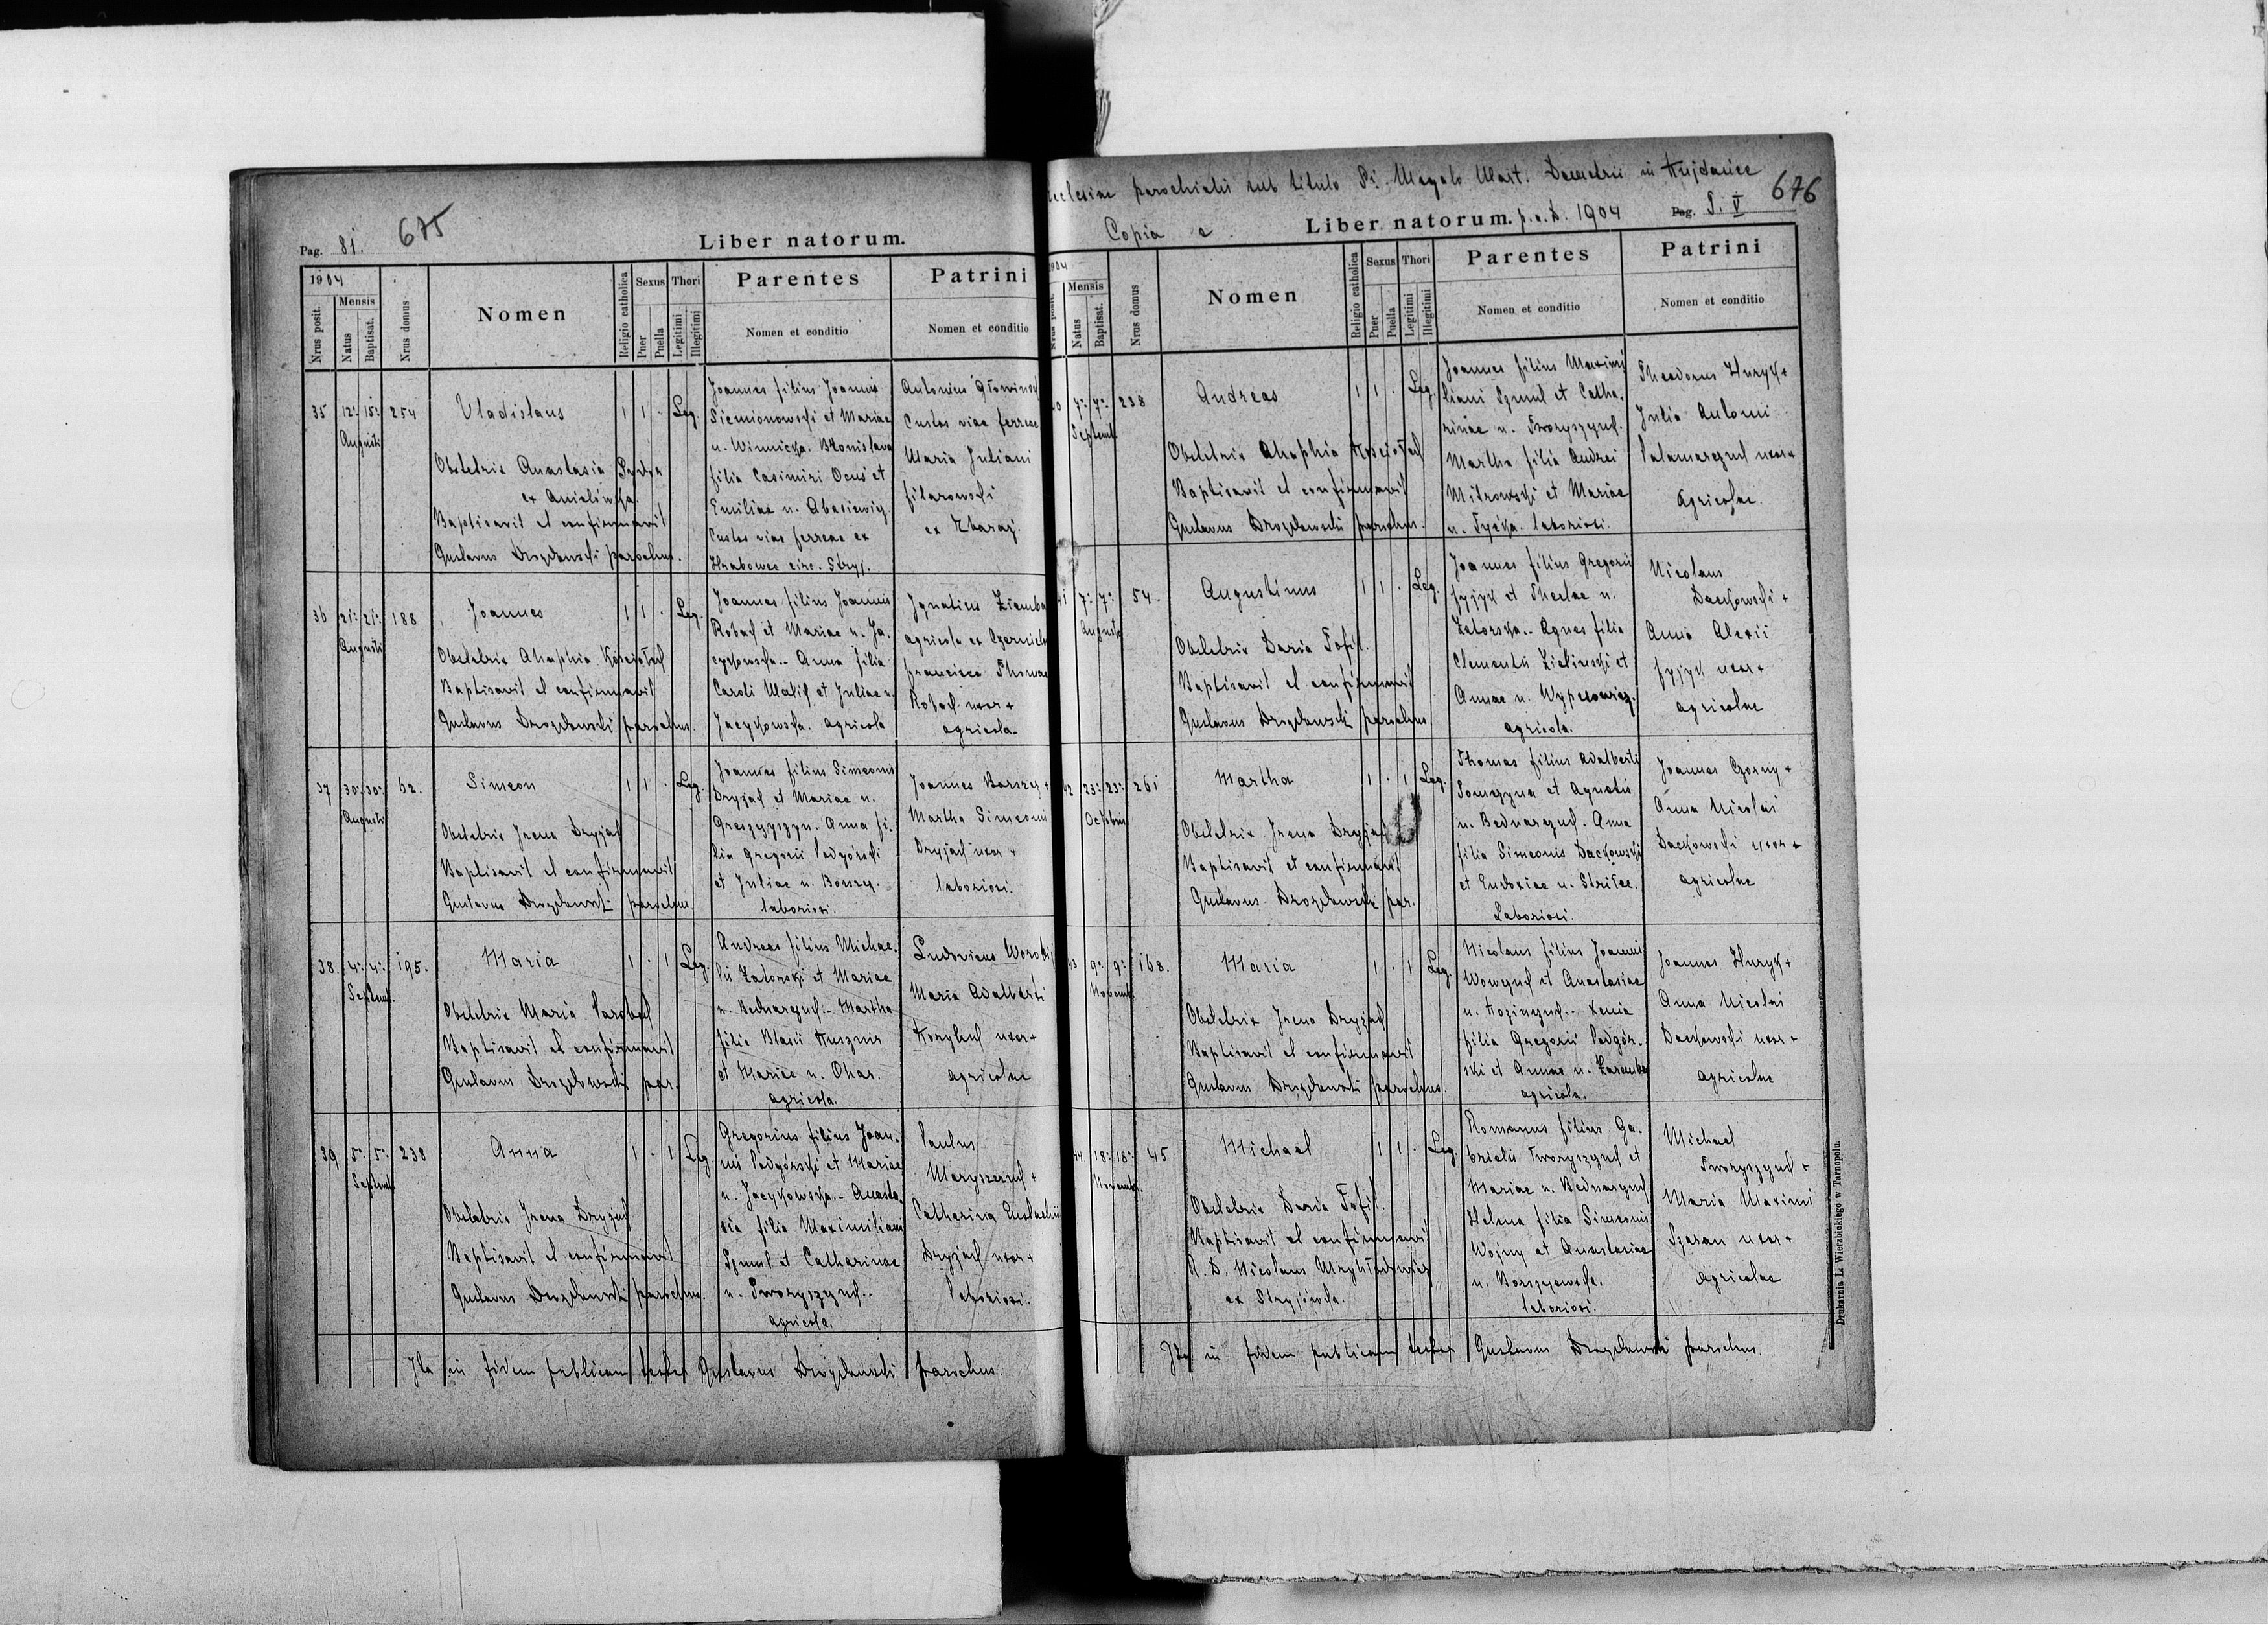 Pag. 81.
675
Liber natorum.
1904
Nrus posit.
Mensis
Natus
Baptisat.
Nrus domus
Nomen
Religio catholica
Sexus
Puer
Puella
Thori
Legitimi
Illegitimi
Parentes
Nomen et conditio
Patrini
Nomen et conditio
35 12. 15. 254 Vladislaus 1 1 . Leg.
Augusti
Obstetrix Anastasia
Baptisavit et confirmavit
Gustavus Drozdowski parochus.
Joannes filius Joannis
Siemionowski et Mariae
n. Winnicka. Bronislava
filia Casimiri Ocuś et
Emiliae n. Abasiewicz
Custos viae ferreae ex
Hrabowce circ. Stryj.
Antonius
Custos viae ferreae
Maria Juliani
Filarowski
ex Zbaraż.
36 21. 21. 188 Joannes 1 1 . Leg.
Augusti
Obstetrix Ahaphia
Baptisavit et confirmavit
Gustavus Drozdowski parochus.
Joannes filius Joannis
Robach et Mariae n. Ja-
cykowska. Anna filia
Caroli et Juliae n.
Jacykowska. agricola
Ignatius Ziemba
agricola ex
Francisca Thomae
Robach uxor +
agricola.
37 30. 30. 62. Simeon 1 1 . Leg.
Augusti
Obstetrix Irena Dryjach
Baptisavit et confirmavit
Gustavus Drozdowski parochus.
Joannes filius Simeonis
Dryjach et Mariae n.
Anna fi-
lia Gregorii Podgórski
et Juliae n. Borszcz.
laboriosi.
Joannes Barszcz +
Martha Simeonis
Dryjach uxor +
laboriosi.
38. 4. 4. 195. Maria 1 . 1 Leg.
Septemb.
Obstetrix Maria Parobach
Baptisavit et confirmavit
Gustavus Drozdowski par.
Andreas filius Michae-
lis Zatorski et Mariae
n. Bednarczuk. Martha
filia Blasii Kusznir
et Mariae n. Ohar.
agricola.
Ludovicus
Maria Adalberti
uxor +
agricolae
39 5. 5. 238 Anna 1 . 1 Leg.
Septemb.
Obstetrix Irena Dryjach
Baptisavit et confirmavit
Gustavus Drozdowski parochus.
Gregorius filius Joan-
nis Podgórski et Mariae
n. Jacykowska. Anasta-
sia filia Maximiliani
Szmul et Catharinae
n. Tworyszczuk.
agricola.
Paulus
Catharina Eustachii
Dryjach uxor +
laboriosi.
Ita in fidem publicam testor Gustavus Drozdowski parochus.
Ecclesiae parochialis sub titulo Si. Megalo Mart. Demetrii in Hujdańce
676
Copia e Liber natorum. p. a. D. 1904 Pag. S. V
1904
Nrus posit.
Mensis
Natus
Baptisat.
Nrus domus
Nomen
Religio catholica
Sexus
Puer
Puella
Thori
Legitimi
Illegitimi
Parentes
Nomen et conditio
Patrini
Nomen et conditio
40 7. 7. 238 Andreas 1 1 . Leg.
Septemb.
Obstetrix Ahaphia
Baptisavit et confirmavit
Gustavus Drozdowski parochus.
Joannes filius Maximi-
liani Szmul et Catha-
rinae n. Tworyszczuk.
Martha filia Andrei
Mitrowski et Mariae
n. laboriosi.
Theodorus Huryk +
Julia Antonii
Palamarczuk uxor +
agricolae.
41 7. 7. 54. Augustinus 1 1 . Leg.
Augusti
Obstetrix Daria Tofil.
Baptisavit et confirmavit
Gustavus Drozdowski parochus
Joannes filius Gregorii
Fyjyk et Theclae n.
Zatorska. Agnes filia
Clementis Zielinski et
Annae n.
agricola.
Nicolaus
Dackowski +
Anna Alexii
Fyjyk uxor +
agricolae
42 23. 23. 261 Martha 1 . 1 Leg.
Octobris
Obstetrix Irena Dryjach
Baptisavit et confirmavit
Gustavus Drozdowski par.
Thomas filius Adalberti
et Agnetis
n. Bednarczuk. Anna
filia Simeonis Dackowski
et Eudoxiae n.
Laboriosi.
Joannes Czorny +
Anna Nicolai
Dackowski uxor +
agricolae
43 9. 9. 168. Maria 1 . 1 Leg.
Novemb.
Obstetrix Irena Dryjach
Baptisavit et confirmavit
Gustavus Drozdowski parochus.
Nicolaus filius Joannis
Wowczuk et Anastasiae
n. Xenia
filia Gregorii Podgór-
ski et Annae n. Zaremba
agricola.
Joannes Huryk +
Anna Nicolai
Dackowski uxor +
agricolae
44. 18. 18. 45 Michael 1 1 . Leg.
Novemb.
Obstetrix Daria Tofil.
Baptisavit et confirmavit
R. D. Nicolaus
ex Stryjówka.
Romanus filius Ga-
brielis Tworyszczuk et
Mariae n. Bednarczuk
Helena filia Simeonis
Wojny et Anastasiae
n.
laboriosi.
Michael
Tworyszczuk +
Maria Maximi
Szaran uxor +
agricolae
Ita in fidem publicam testor Gustavus Drozdowski parochus.
Drukarnia L. Wierzbickiego w Tarnopolu.